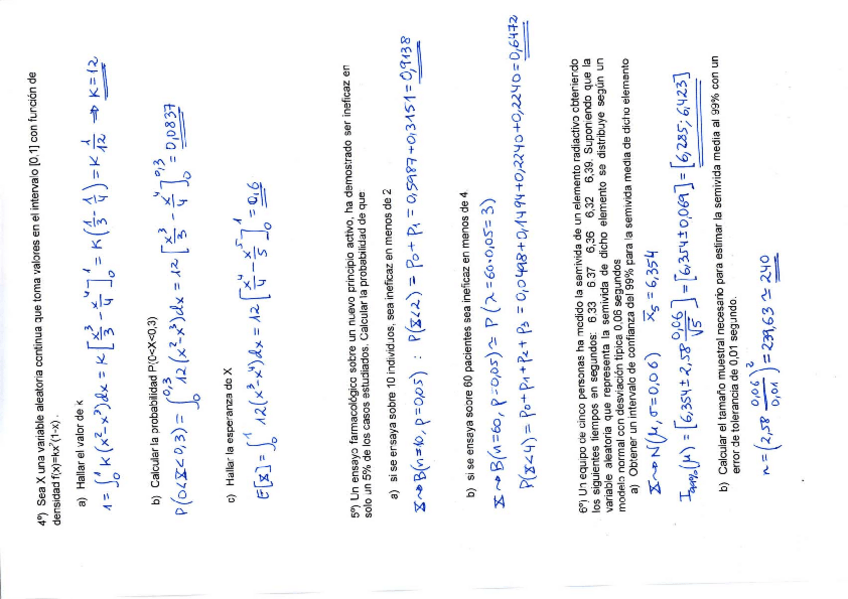 4º) Sea X una variable aleatoria continua que toma valores en el intervalo [0,1] con función de
densidad f(x)=kx²(1-x).
a) Hallar el valor de k
1=∫₀¹ K(x²-x³)dx = K[x³/3 - x⁴/4]₀¹ = K(1/3 - 1/4) = K 1/12 ⇒ K=12
b) Calcular la probabilidad P(0<X<0.3)
P(0<X<0,3) = ∫₀^0,3 12(x²-x³)dx = 12[x³/3 - x⁴/4]₀^0,3 = 0,0837
c) Hallar la esperanza de X
E[X] = ∫₀¹ 12(x³-x⁴)dx = 12[x⁴/4 - x⁵/5]₀¹ = 0,6
5º) Un ensayo farmacológico sobre un nuevo principio activo, ha demostrado ser ineficaz en
solo un 5% de los casos estudiados. Calcular la probabilidad de que
a) si se ensaya sobre 10 individuos, sea ineficaz en menos de 2
X~B(n=10, p=0,05) : P(X<2) = P₀+P₁ = 0,5987+0,3151=0,9138
b) si se ensaya sobre 60 pacientes sea ineficaz en menos de 4
X~B(n=60, p=0,05) ≃ P(λ=60·0,05=3)
P(X<4) = P₀+P₁+P₂+P₃ = 0,0498+0,1494+0,2240+0,2240=0,6472
6º) Un equipo de cinco personas ha medido la semivida de un elemento radiactivo obteniendo
los siguientes tiempos en segundos: 6.33 6.37 6,36 6,32 6,39. Suponiendo que la
variable aleatoria que representa la semivida de dicho elemento se distribuye según un
modelo normal con desviación típica 0.06 segundos
a) Obtener un intervalo de confianza del 99% para la semivida media de dicho elemento
X~N(μ, σ=0,06) x̄₅ = 6,354
I₉₉%(μ) = [6,354±2,58 0,06/√5] = [6,354±0,069] = [6,285; 6,423]
b) Calcular el tamaño muestral necesario para estimar la semivida media al 99% con un
error de tolerancia de 0,01 segundo.
n = (2,58 0,06/0,01)² = 239,63 ≃ 240